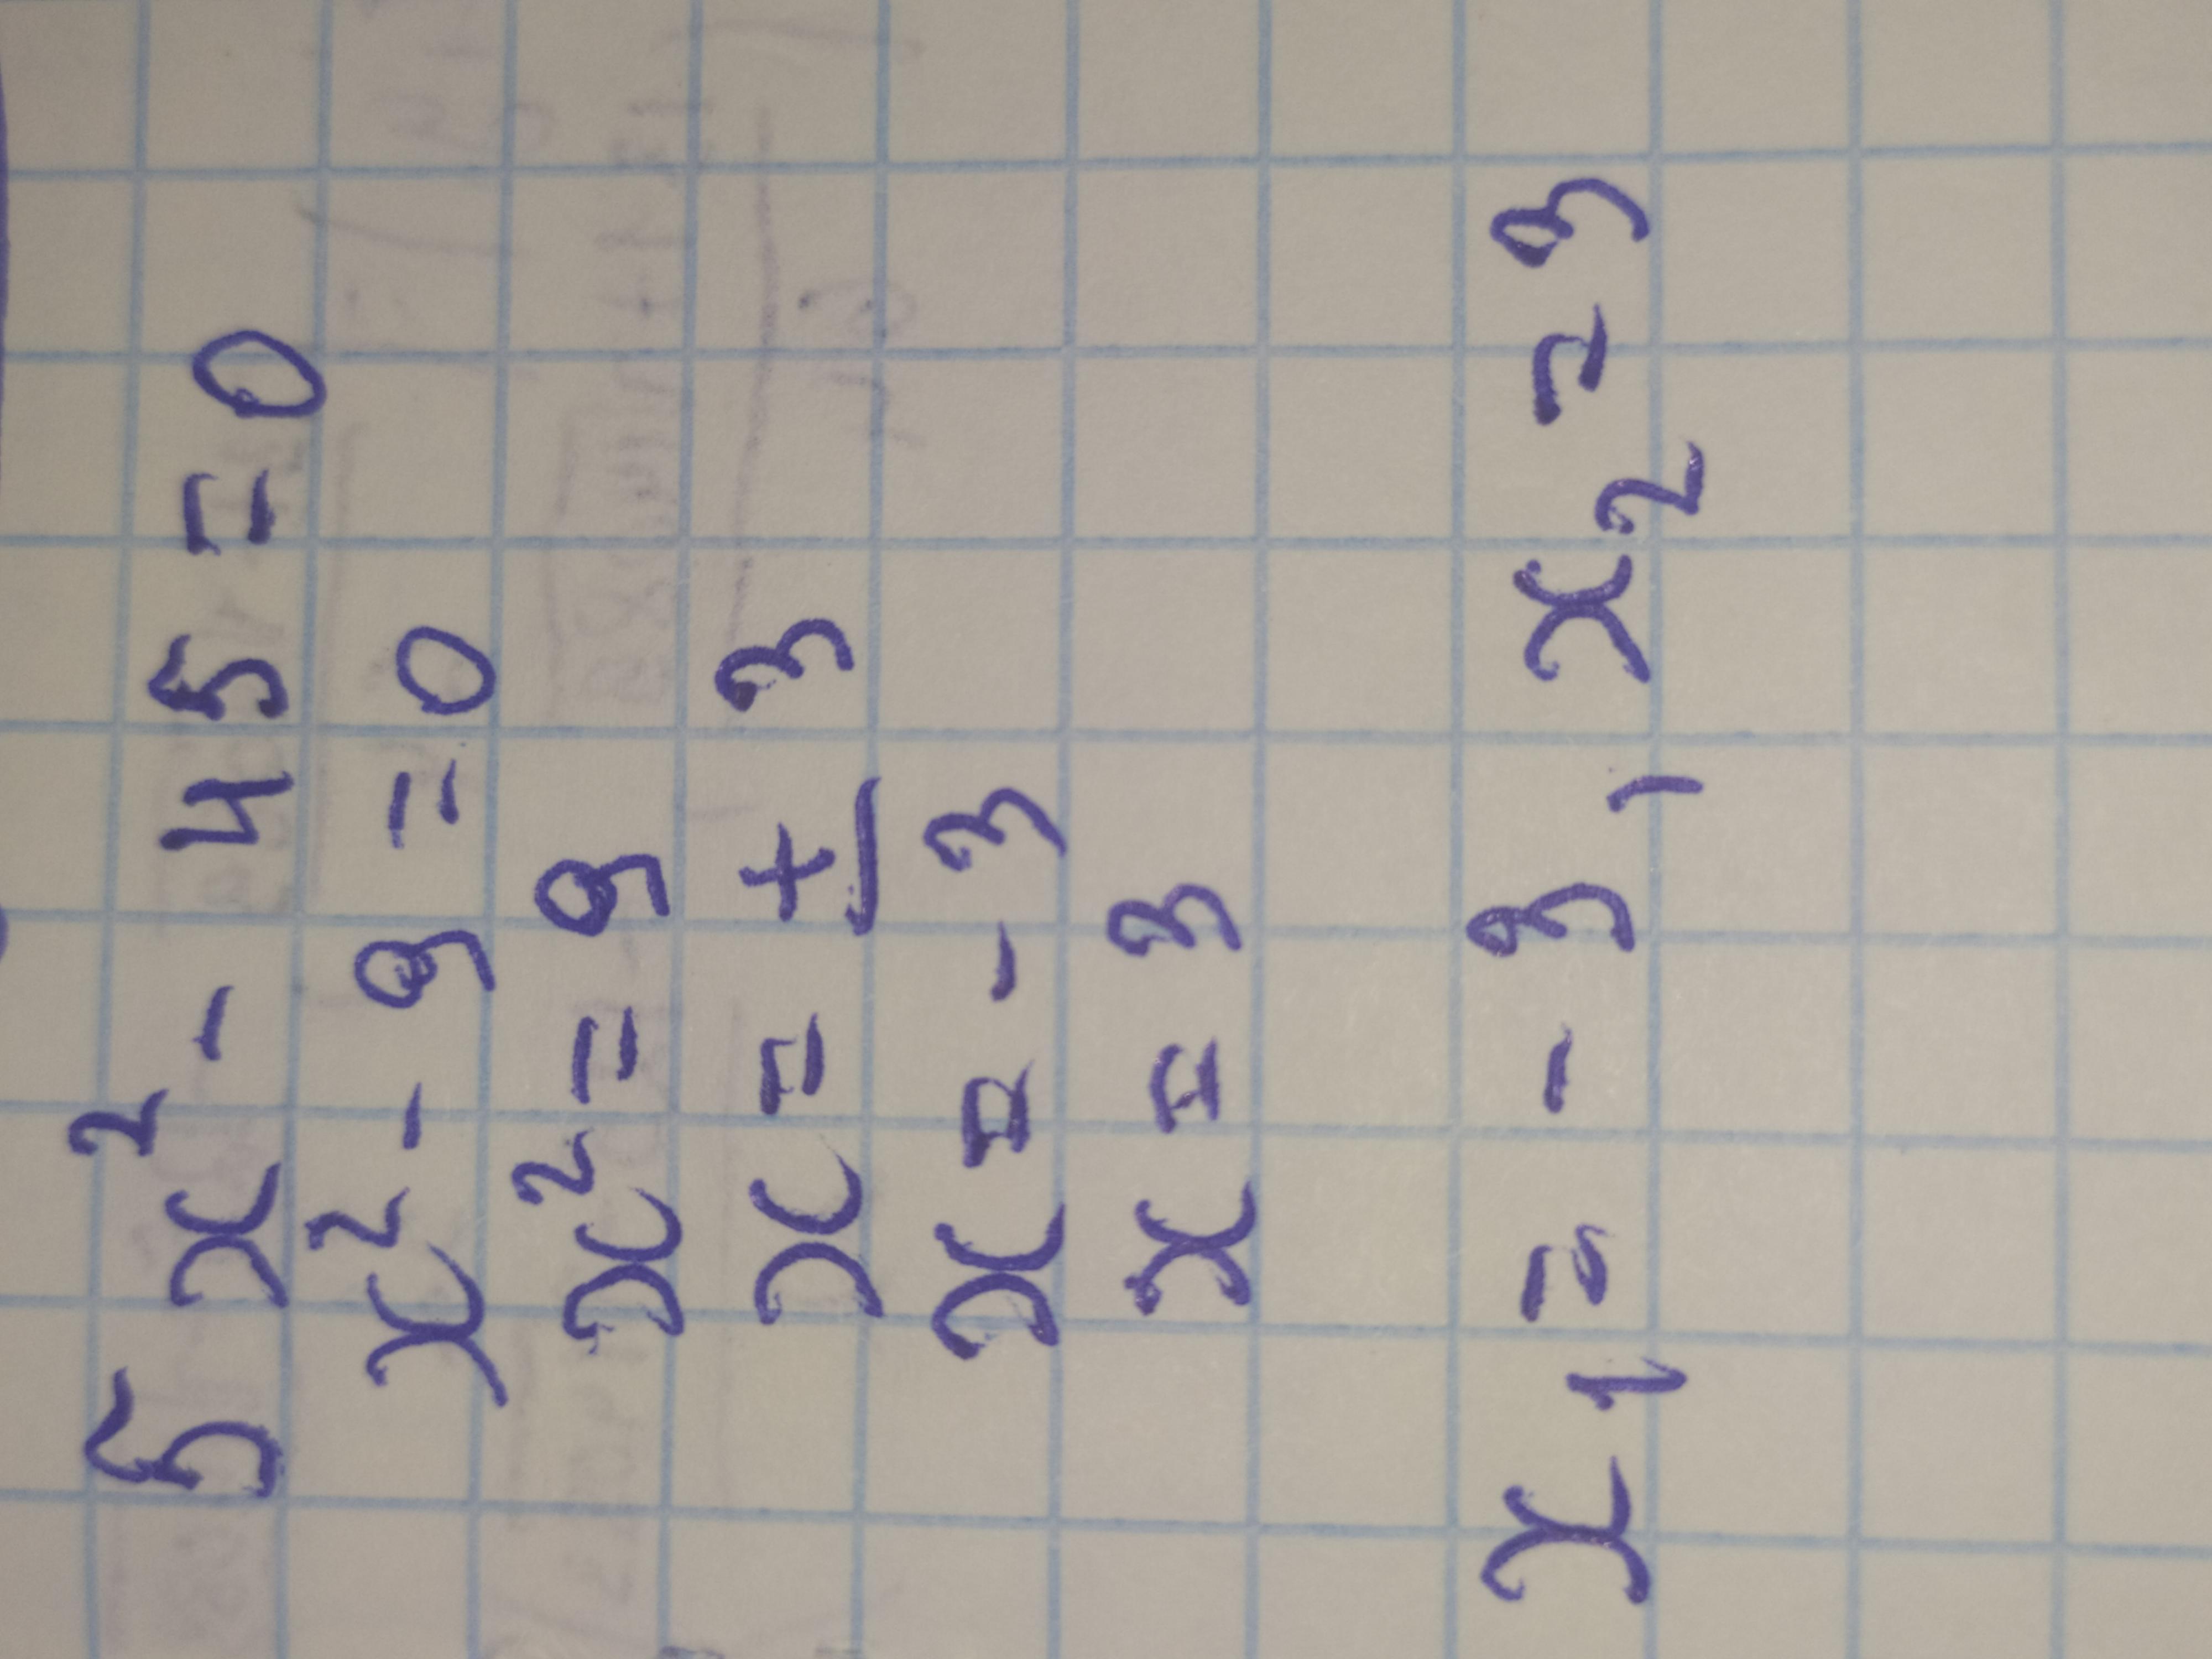 5x² - 45 = 0
x² - 9 = 0
x² = 9
x = ± 3
x = - 3
x = 3
x₁ = - 3, x₂ = 3